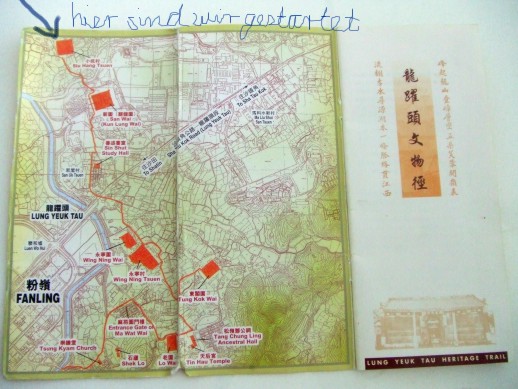 hier sind wir gestartet
小坑村
Siu Hang Tsuen
新圍（覲龍圍）
San Wai
(Kun Lung Wai)
善述書室
Sin Shut
Study Hall
新屋村
San Uk Tsuen
往沙田
To Shatin
沙頭角公路－龍躍頭段
Sha Tau Kok Road (Lung Yeuk Tau)
往沙頭角
To Sha Tau Kok
馬料水新村
Ma Liu Shui
San Tsuen
龍躍頭
LUNG YEUK TAU
聯和墟
Luen Wo Hui
粉嶺
FANLING
永寧圍
Wing Ning Wai
永寧村
Wing Ning Tsuen
東閣圍
Tung Kok Wai
麻笏圍門樓
Entrance Gate of
Ma Wat Wai
松嶺鄧公祠
Tang Chung Ling
Ancestral Hall
崇謙堂
Tsung Kyam Church
石廬
Shek Lo
老圍
Lo Wai
天后宮
Tin Hau Temple
龍躍頭文物徑
LUNG YEUK TAU HERITAGE TRAIL